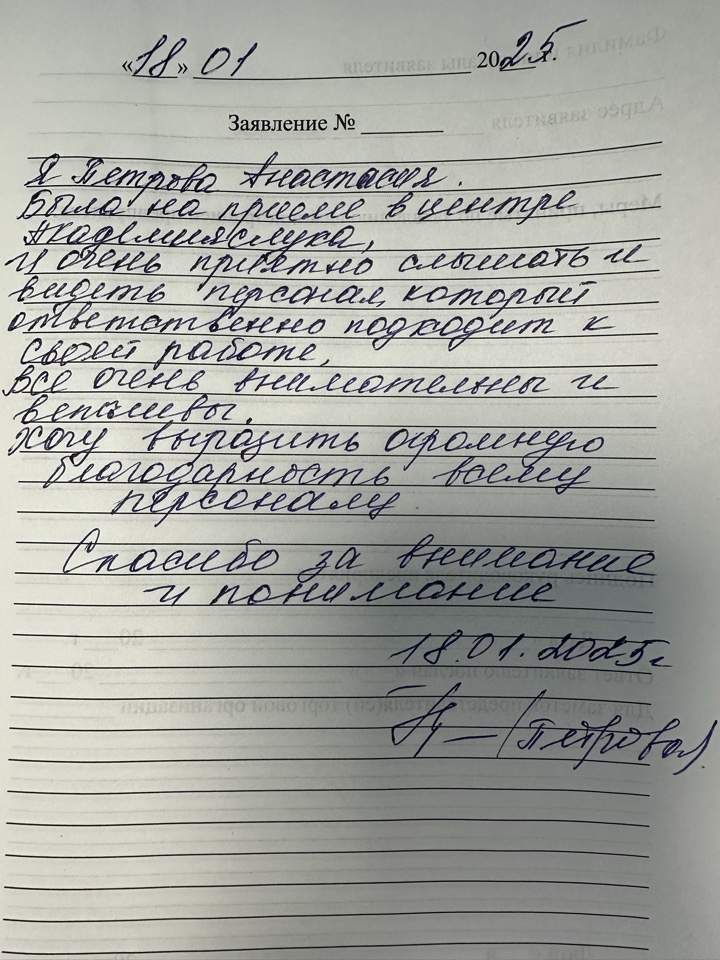 «18» 01 2025 г.
Заявление №
Я Петрова Анастасия.
Была на приеме в центре
Академия слуха,
и очень приятно слышать и
видеть персонал, который
ответственно подходит к
своей работе,
все очень внимательны и
вежливы.
Хочу выразить огромную
благодарность всему
персоналу
Спасибо за внимание
и понимание
18.01.2025 г
(Петрова)